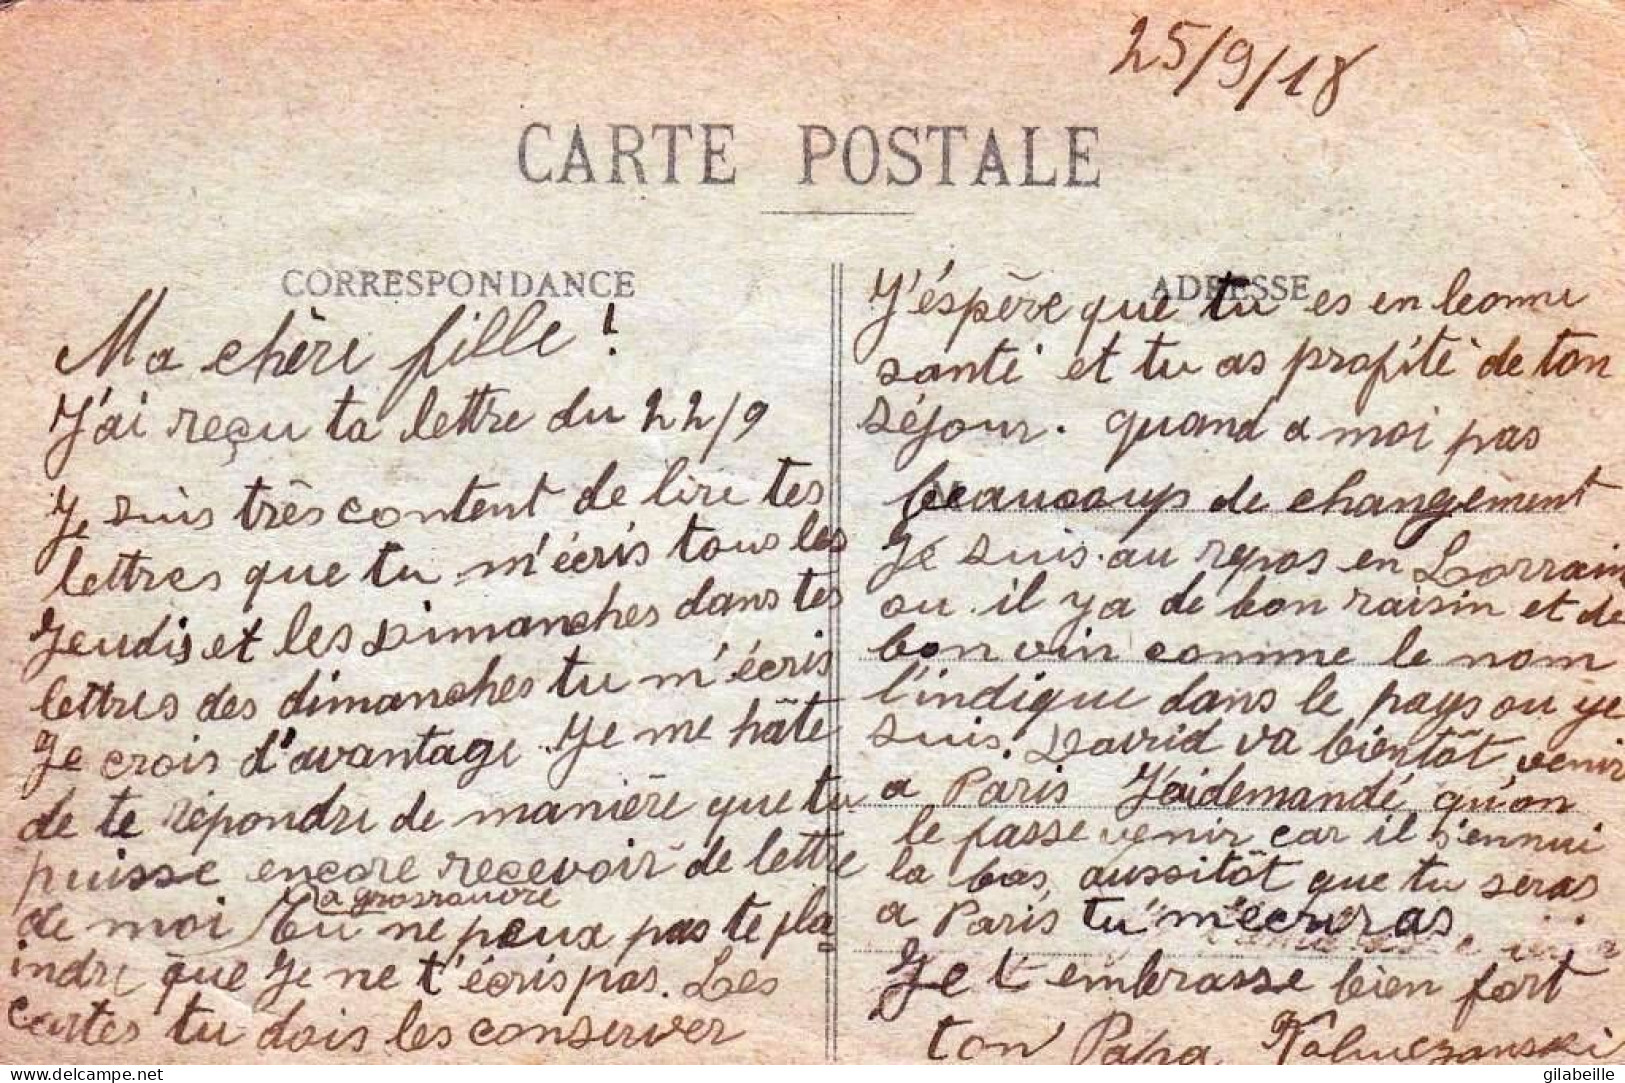 25/9/18
CARTE POSTALE
CORRESPONDANCE
Ma chère fille !
J'ai reçu ta lettre du 22/9
Je suis très content de lire tes
lettres que tu m'écris tous les
Jeudis et les Dimanches dans tes
lettres des dimanches tu m'écris
Je crois d'avantage. Je me hâte
de te répondre de manière que tu
puisse encore recevoir de lettre
a grosrouvre
de moi Tu ne peux pas te pla-
indre que Je ne t'écris pas. Les
cartes tu dois les conserver
ADRESSE
J'éspère que tu es en bonne
santé et tu as profité de ton
séjour. quand a moi pas
beaucoup de changement
Je suis au repos en Lorrain
ou il y a de bon raisin et de
bon vin comme le nom
l'indique dans le pays ou je
suis. David va bientôt venir
a Paris J'ai demandé qu'on
le fasse venir car il s'ennui
la bas, aussitôt que tu seras
a Paris tu m'ecriras
Je t'embrasse bien fort
ton Papa
delcampe.net
gilabeille